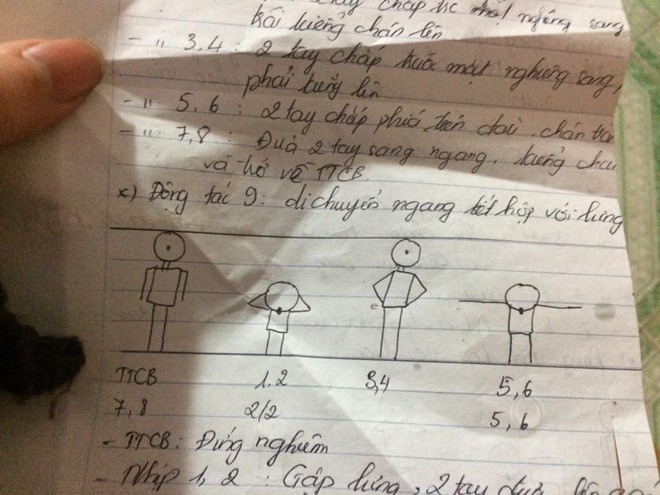 chấp trc mặt nghiêng sang
trái kiễng chân lên
- " 3.4 : 2 tay chấp trước mặt nghiêng sang,
phải kiễng lên
- " 5,6 : 2 tay chấp phía trên đầu, chân
- " 7,8 : Đưa 2 tay sang ngang, kiễng
và hạ về TTCB.
x) Động tác 9: di chuyển ngang kết hợp với lưng
TTCB 1.2 3,4 5,6
7,8 2/2 5,6
- TTCB: Đứng nghiêm
- Nhịp 1, 2 : Gập lưng, 2 tay